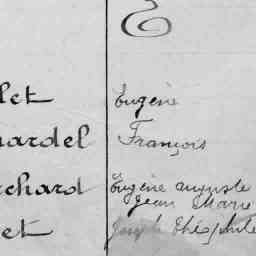 E
let Eugène
nardel François
rchard Eugène auguste
Jean Marie
et Joseph Théophile